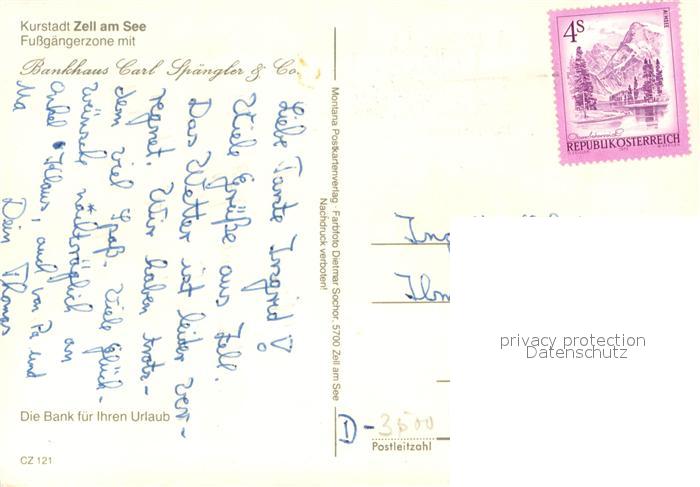 Kurstadt Zell am See
Fußgängerzone mit
Bankhaus Carl Spängler & Co.
Liebe Tante Ingrid!
Viele Grüße aus Zell.
Das Wetter ist leider ver-
regnet. Wir haben trotz-
dem viel Spaß. Viele Glück-
wünsche nachträglich an
Onkel Klaus, auch von Pa und
Ma
Dein Thomas
Die Bank für Ihren Urlaub
CZ 121
Montana Postkartenverlag · Farbfoto Dietmar Sochor, 5700 Zell am See
Nachdruck verboten!
4S
ALMSEE
REPUBLIK ÖSTERREICH
Ing
D-3500
Postleitzahl
privacy protection
Datenschutz